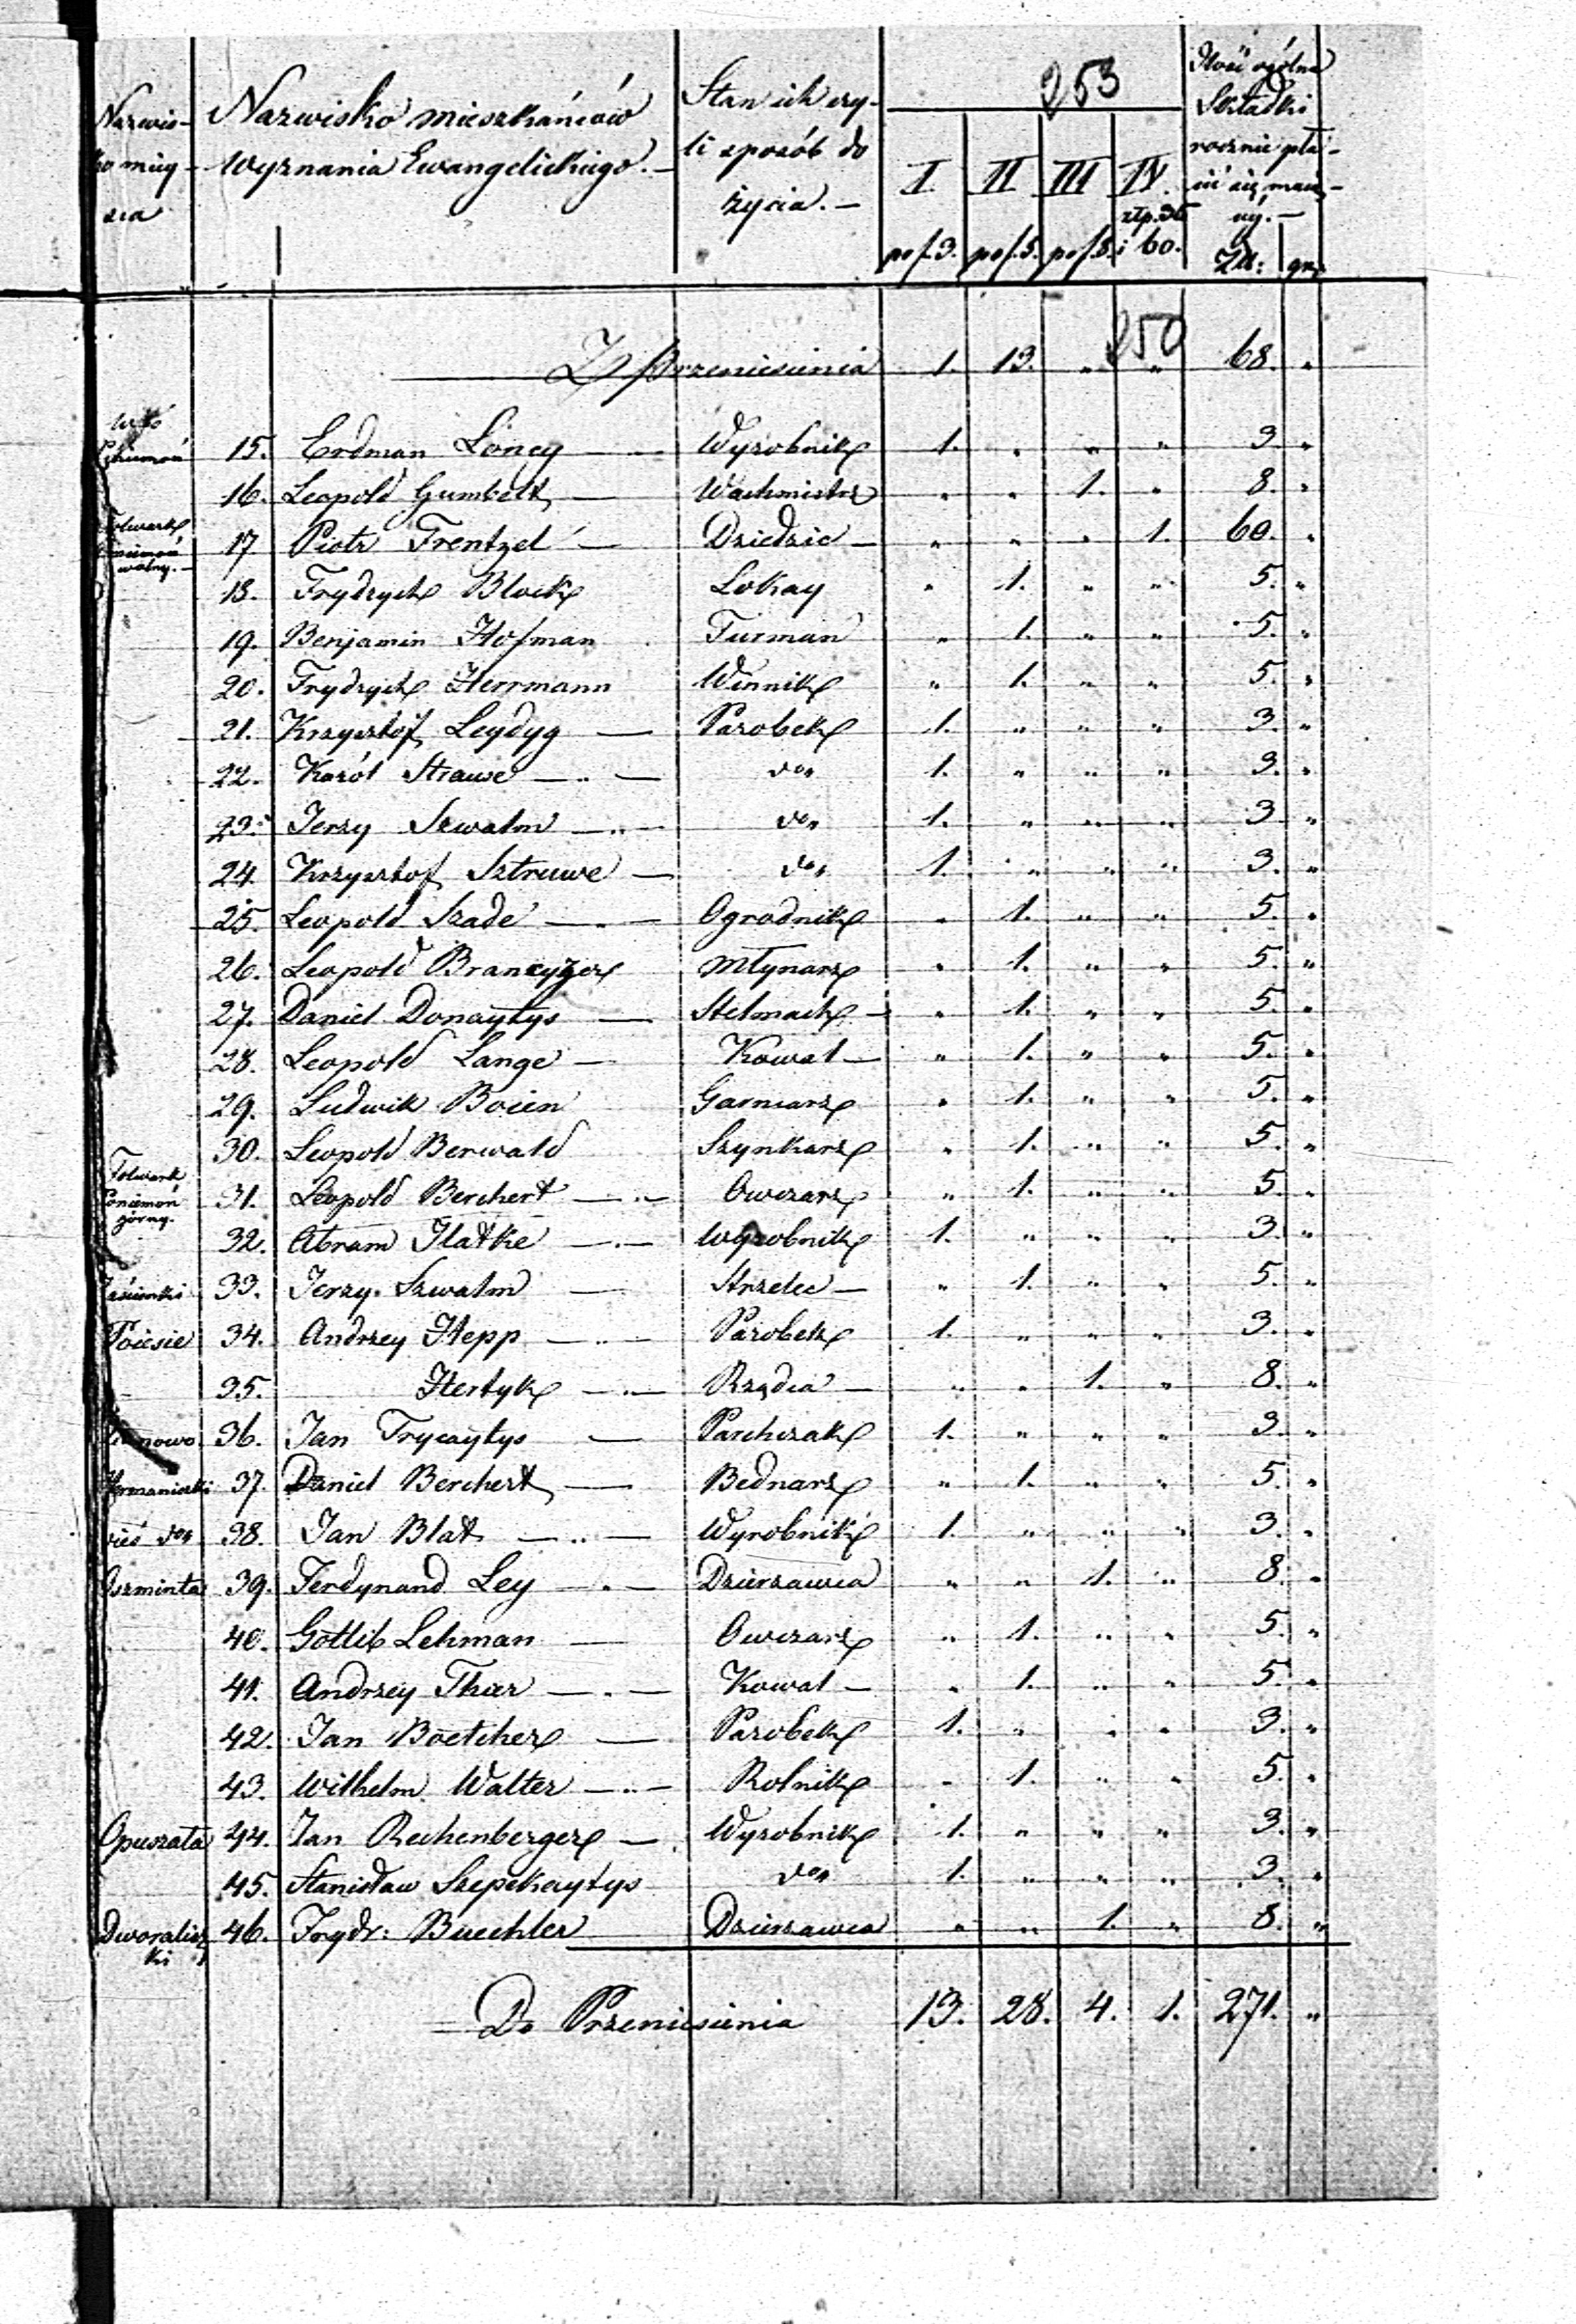 253
Nazwisko mieysca | Nazwisko mieszkańców wyznania Ewangelickiego. | Stan ich czyli sposób do życia. | I. po f. 3. | II po f. 5. | III po f. 8. | IV. złp. i 60. | Ilość ogólna Składki rocznie płacić się maiący. Zł: gr.
250
Z Przeniesienia 1. 13. " " 68. "
15. Erdman Loney — Wyrobnik 1. " " " 3 "
16. Leopold Gumbelt — Wachmistrz " " 1. " 8. "
Folwark wolny. 17 Piotr Frentzel — Dziedzic — " " " 1. 60. "
18. Frydrych Block Lokay " 1. " " 5. "
19. Benjamin Hofman Furman " 1. " " 5. "
20. Frydrych Herrmann Winnik " 1. " " 5. "
21. Krzysztof Leydyg — Parobek 1. " " " 3. "
22. Karól Strause — do 1. " " " 3. "
23. Jerzy Szwalm — do 1. " " " 3 "
24. Krzysztof Sztruwe — do 1. " " " 3. "
25. Leopold Szade — Ogrodnik " 1. " " 5. "
26. Leopold Młynarz " 1. " " 5. "
27. Daniel Donaytys — Stelmach — " 1. " " 5. "
28. Leopold Lange — Kowal — " 1. " " 5. "
29. Ludwik Boien Garncarz " 1. " " 5. "
30. Leopold Berwald Szynkarz " 1. " " 5. "
Folwark Poniemoń górny. 31. Leopold Berchert — Owczarz " 1. " " 5. "
32. Abram Flatke — Wyrobnik 1. " " " 3. "
33. Jerzy Szwalm — Strzelec — " 1. " " 5. "
Poiesie 34. Andrzey Hepp — Parobek 1. " " " 3. "
35. Hertyk — Rządca — " " 1. " 8. "
36. Jan Trycaytys — Parobczak 1. " " " 3. "
Hermaniszki 37. Daniel Berchert — Bednarz " 1. " " 5. "
wieś do 38. Jan Blat — Wyrobnik 1. " " " 3. "
Oszminta 39. Ferdynand Ley — Dzierzawca " " 1. " 8. "
40. Gottlib Lehman — Owczarz " 1. " " 5. "
41. Andrzey Thar — Kowal — " 1. " " 5. "
42. Jan Boetcher — Parobek 1. " " " 3. "
43. Wilhelm Walter — Rolnik " 1. " " 5. "
Opuszata 44. Jan Rechenberger — Wyrobnik 1. " " " 3. "
45. Stanisław Szepekaytys do 1. " " " 3. "
Dworaliszki 46. Frydr: Buechler Dzierzawca " " 1. " 8. "
Do Przeniesienia 13. 28. 4. 1. 271. "